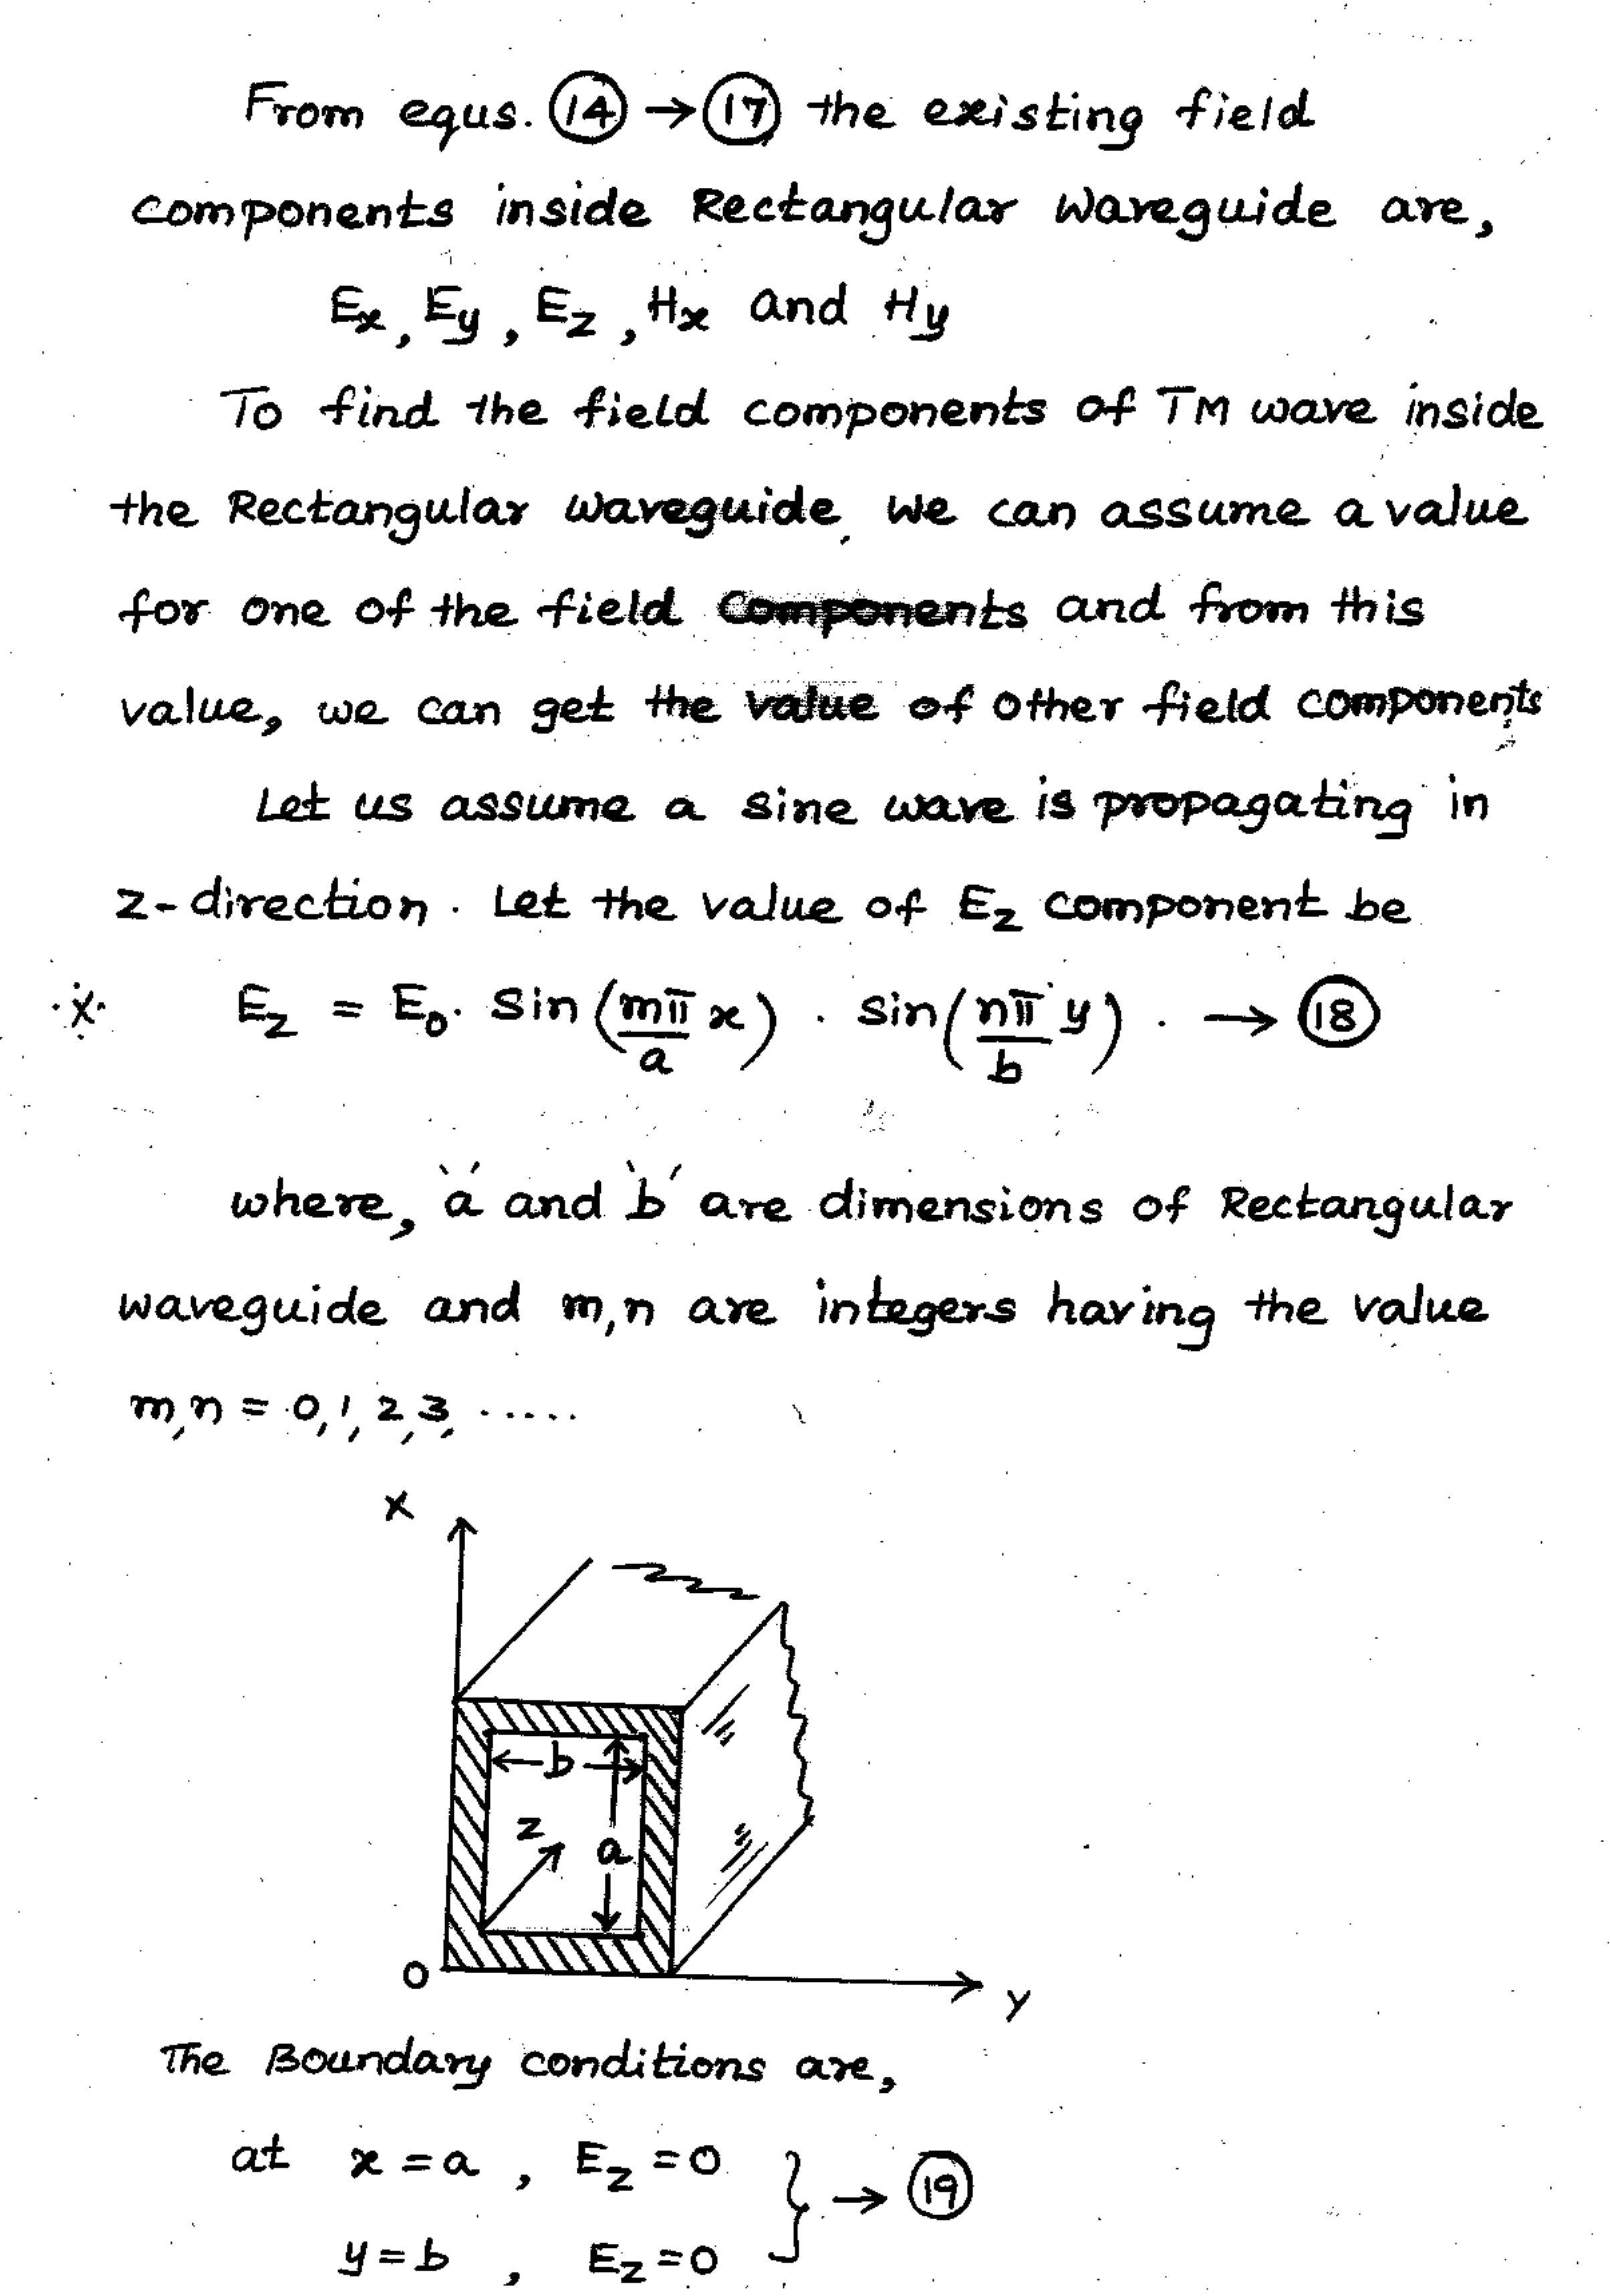 From equs. (14) → (17) the existing field
components inside Rectangular Waveguide are,
Ex, Ey, Ez, Hx and Hy
To find the field components of TM wave inside
the Rectangular waveguide, we can assume a value
for one of the field components and from this
value, we can get the value of other field components
Let us assume a sine wave is propagating in
z-direction. Let the value of Ez component be
Ez = E0. Sin (mπ/a x) . sin (nπ/b y) . → (18)
where, 'a' and 'b' are dimensions of Rectangular
waveguide and m,n are integers having the value
m,n = 0,1,2,3, .....
X
b
z
a
O
y
The Boundary conditions are,
at x = a , Ez = 0
y = b , Ez = 0 } → (19)